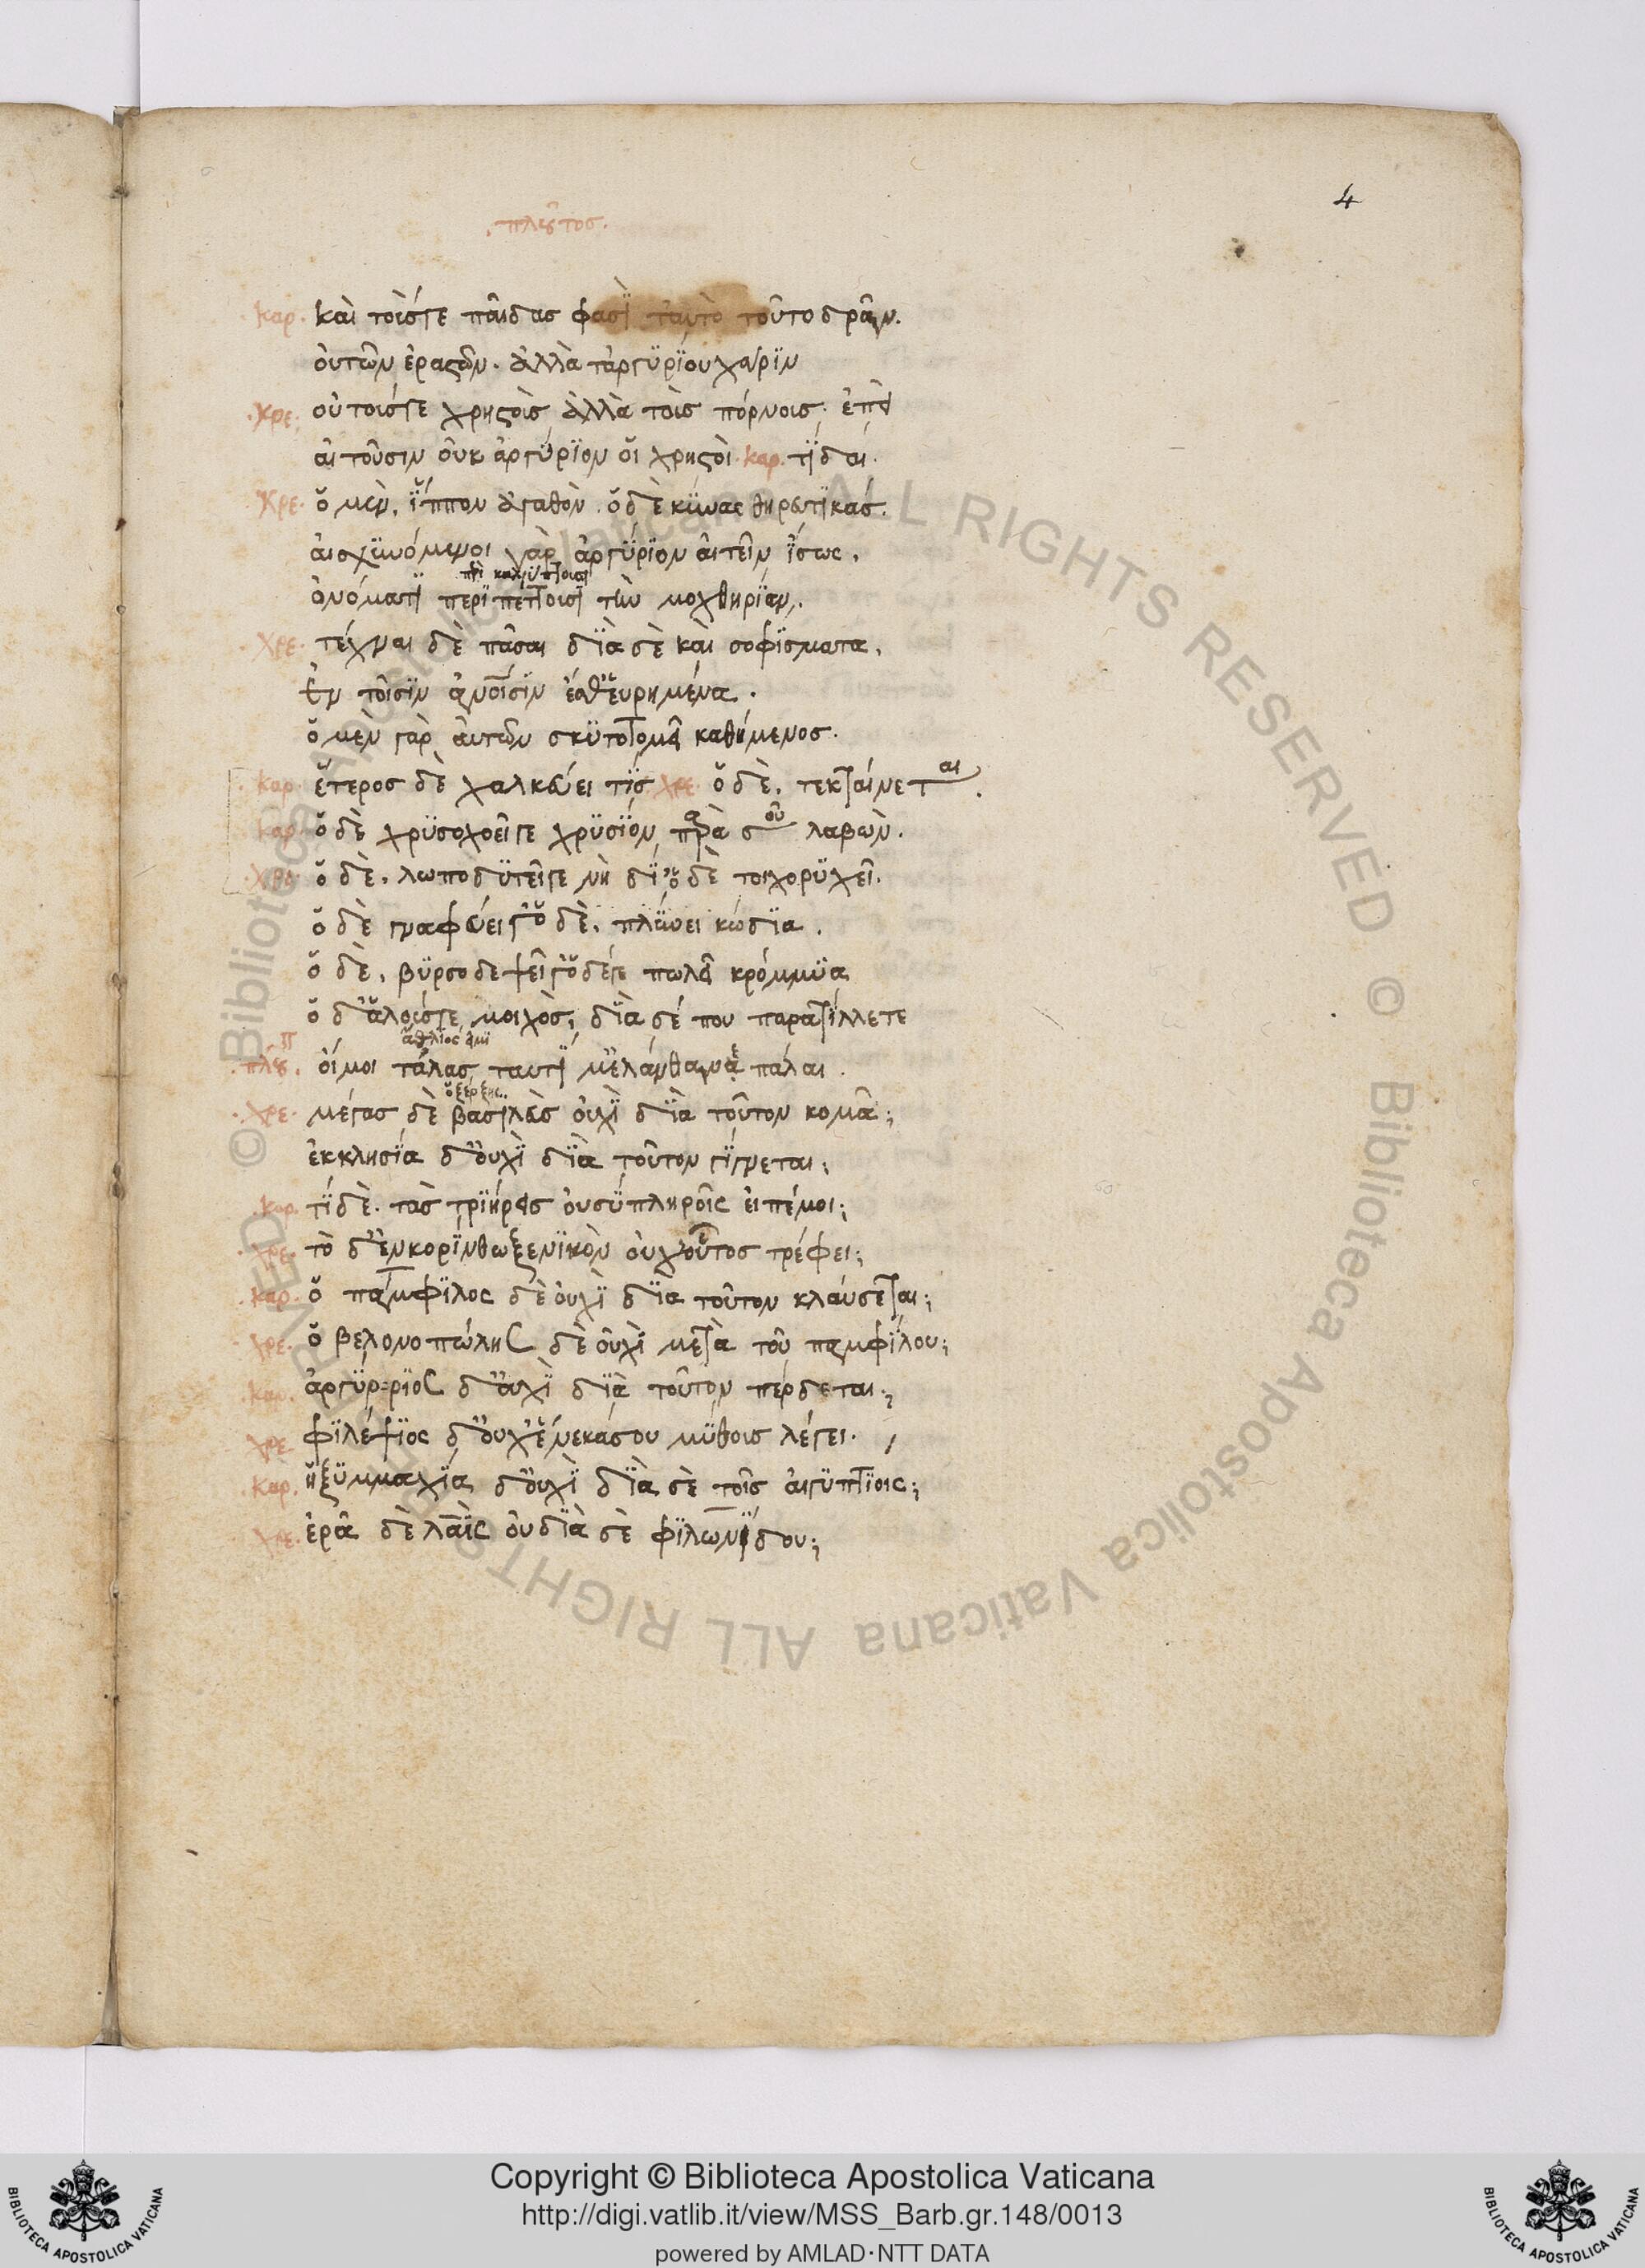 4
. πλοῦτος .
καρ. καὶ τοὺς γε παῖδας φασὶ ταυτὸ τοῦτο δρᾶν.
οὐ τῶν ἐραστῶν. ἀλλὰ τἀργυρίου χάριν
χρε. οὐ τούς γε χρηστοὺς ἀλλὰ τοὺς πόρνους. ἐπεὶ
αἰτοῦσιν οὐκ ἀργύριον οἱ χρηστοὶ. καρ. τί δαί.
χρε. ὁ μὲν, ἵππον ἀγαθὸν. ὁ δὲ κύνας θηρευτικάς.
αἰσχυνόμενοι γὰρ ἀργύριον αἰτεῖν ἴσως.
περικαλύπτουσι
ὀνόματι περιπέττουσι τὴν μοχθηρίαν.
χρε. τέχναι δὲ πᾶσαι διὰ σὲ καὶ σοφίσματα.
ἐν τοῖσιν ἀνοῖσιν ἐσθ' εὑρημένα.
ὁ μὲν γὰρ αὐτῶν σκυτοτομεῖ καθήμενος.
καρ. ἕτερος δὲ χαλκεύει τίς χρε. ὁ δὲ, τεκταίνεται.
καρ. ὁ δὲ χρυσοχοεῖ γε χρυσίον παρὰ σοῦ λαβὼν.
χρε. ὁ δὲ, λωποδυτεῖ γε νὴ δί' ὁ δὲ τοιχορυχεῖ.
ὁ δὲ γναφεύει γ' ὁ δὲ, πλύνει κώδια.
ὁ δὲ, βυρσοδεψεῖ γ' ὁ δέ γε πωλεῖ κρόμμυα
ὁ δ' ἁλούς γε μοιχὸς, διὰ σέ που παρατίλλετε
ἄθλιος εἰμὶ
πλου. οἴμοι τάλας ταυτί μ' ἐλάνθανε πάλαι.
ὁ ξέρξης
χρε. μέγας δὲ βασιλεὺς οὐχὶ διὰ τοῦτον κομᾶ;
ἐκκλησία δ' οὐχὶ διὰ τοῦτον γίγνεται;
καρ. τί δὲ. τὰς τριήρεις οὐ σὺ πληροῖς εἰπέ μοι;
χρε. τὸ δ' ἐν κορίνθω ξενικὸν οὐχ οὗτος τρέφει;
καρ. ὁ πάμφιλος δὲ οὐχὶ διὰ τοῦτον κλαύσεται;
χρε. ὁ βελονοπώλης δὲ οὐχὶ μετὰ τοῦ παμφίλου;
καρ. ἀργύρριος δ' οὐχὶ διὰ τοῦτον πέρδεται;
χρε. φιλέψιος δ' οὐχ ἕνεκά σου μύθους λέγει.
καρ. ἡ ξυμμαχία δ' οὐχὶ διὰ σὲ τοῖς αἰγυπτίοις;
χρε. ἐρᾶ δὲ λαῒς οὐ διὰ σὲ φιλωνίδου;
© Biblioteca Apostolica Vaticana ALL RIGHTS RESERVED
© Biblioteca Apostolica Vaticana ALL RIGHTS RESERVED
Copyright © Biblioteca Apostolica Vaticana
http://digi.vatlib.it/view/MSS_Barb.gr.148/0013
powered by AMLAD·NTT DATA
BIBLIOTECA APOSTOLICA VATICANA
BIBLIOTECA APOSTOLICA VATICANA